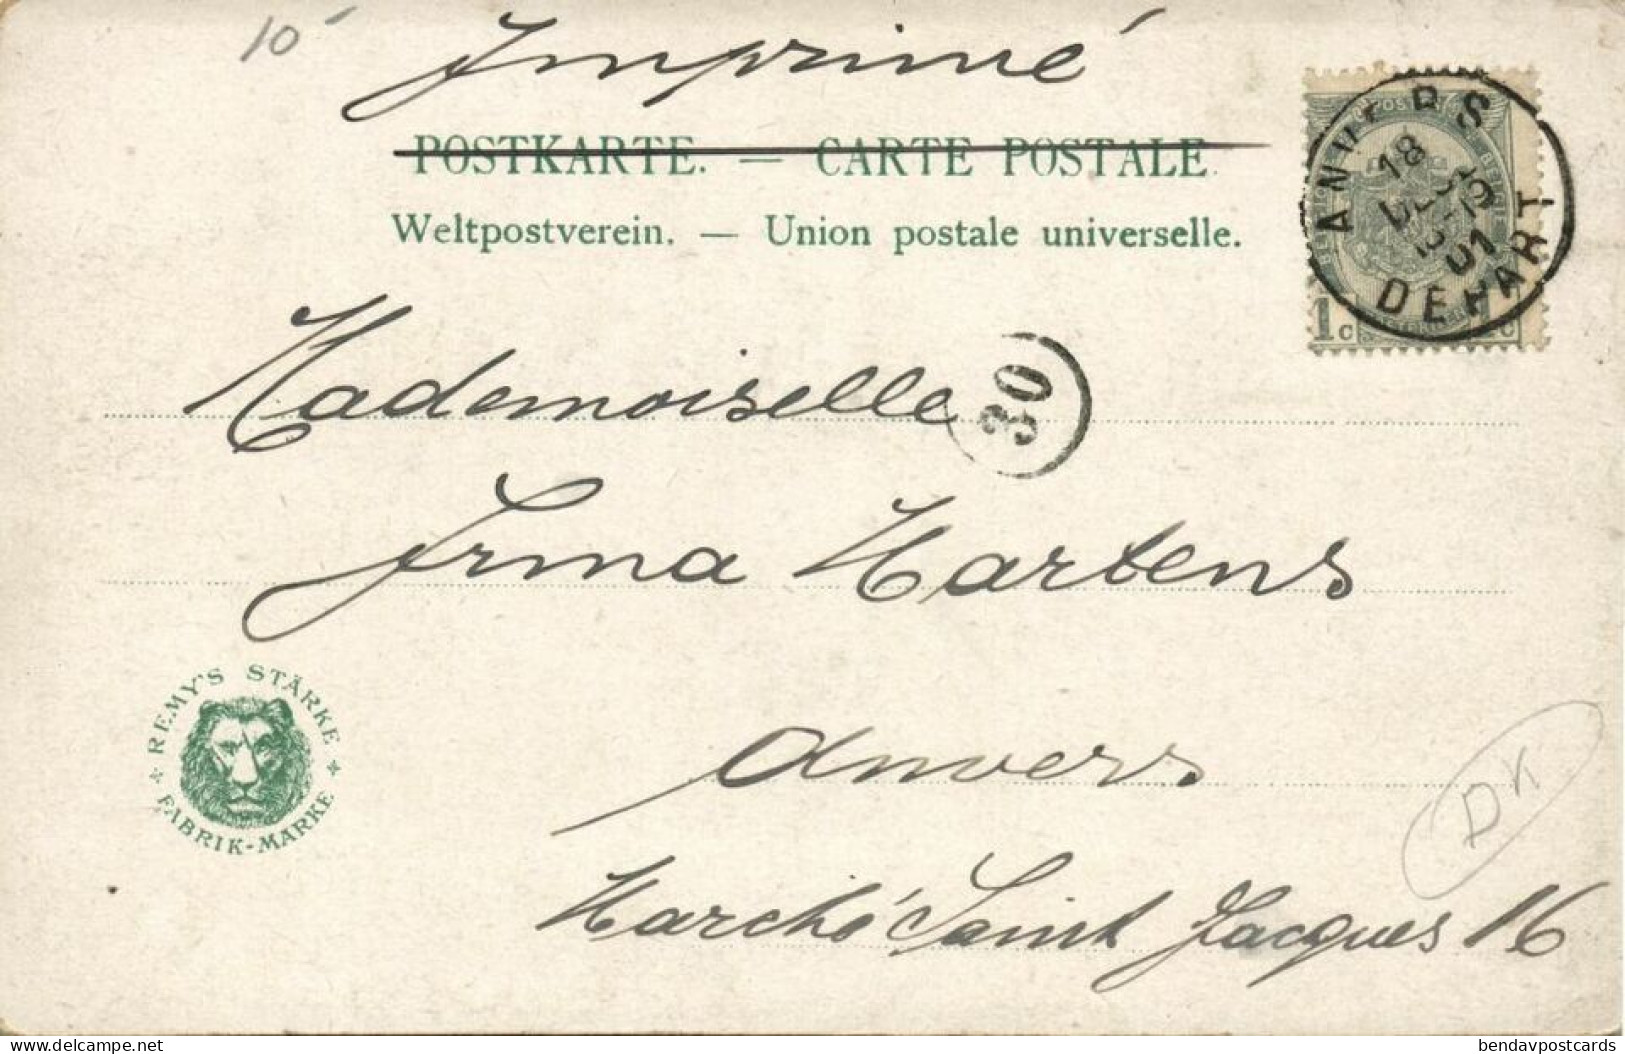 10
Imprimé
POSTKARTE. — CARTE POSTALE
Weltpostverein. — Union postale universelle.
ANVERS
18
DEPART
01
1c 1c
Mademoiselle
30
Irma Martens
REMY'S STÄRKE
FABRIK-MARKE
Anvers
DK
Marché Saint Jacques 16
delcampe.net
bendavpostcards